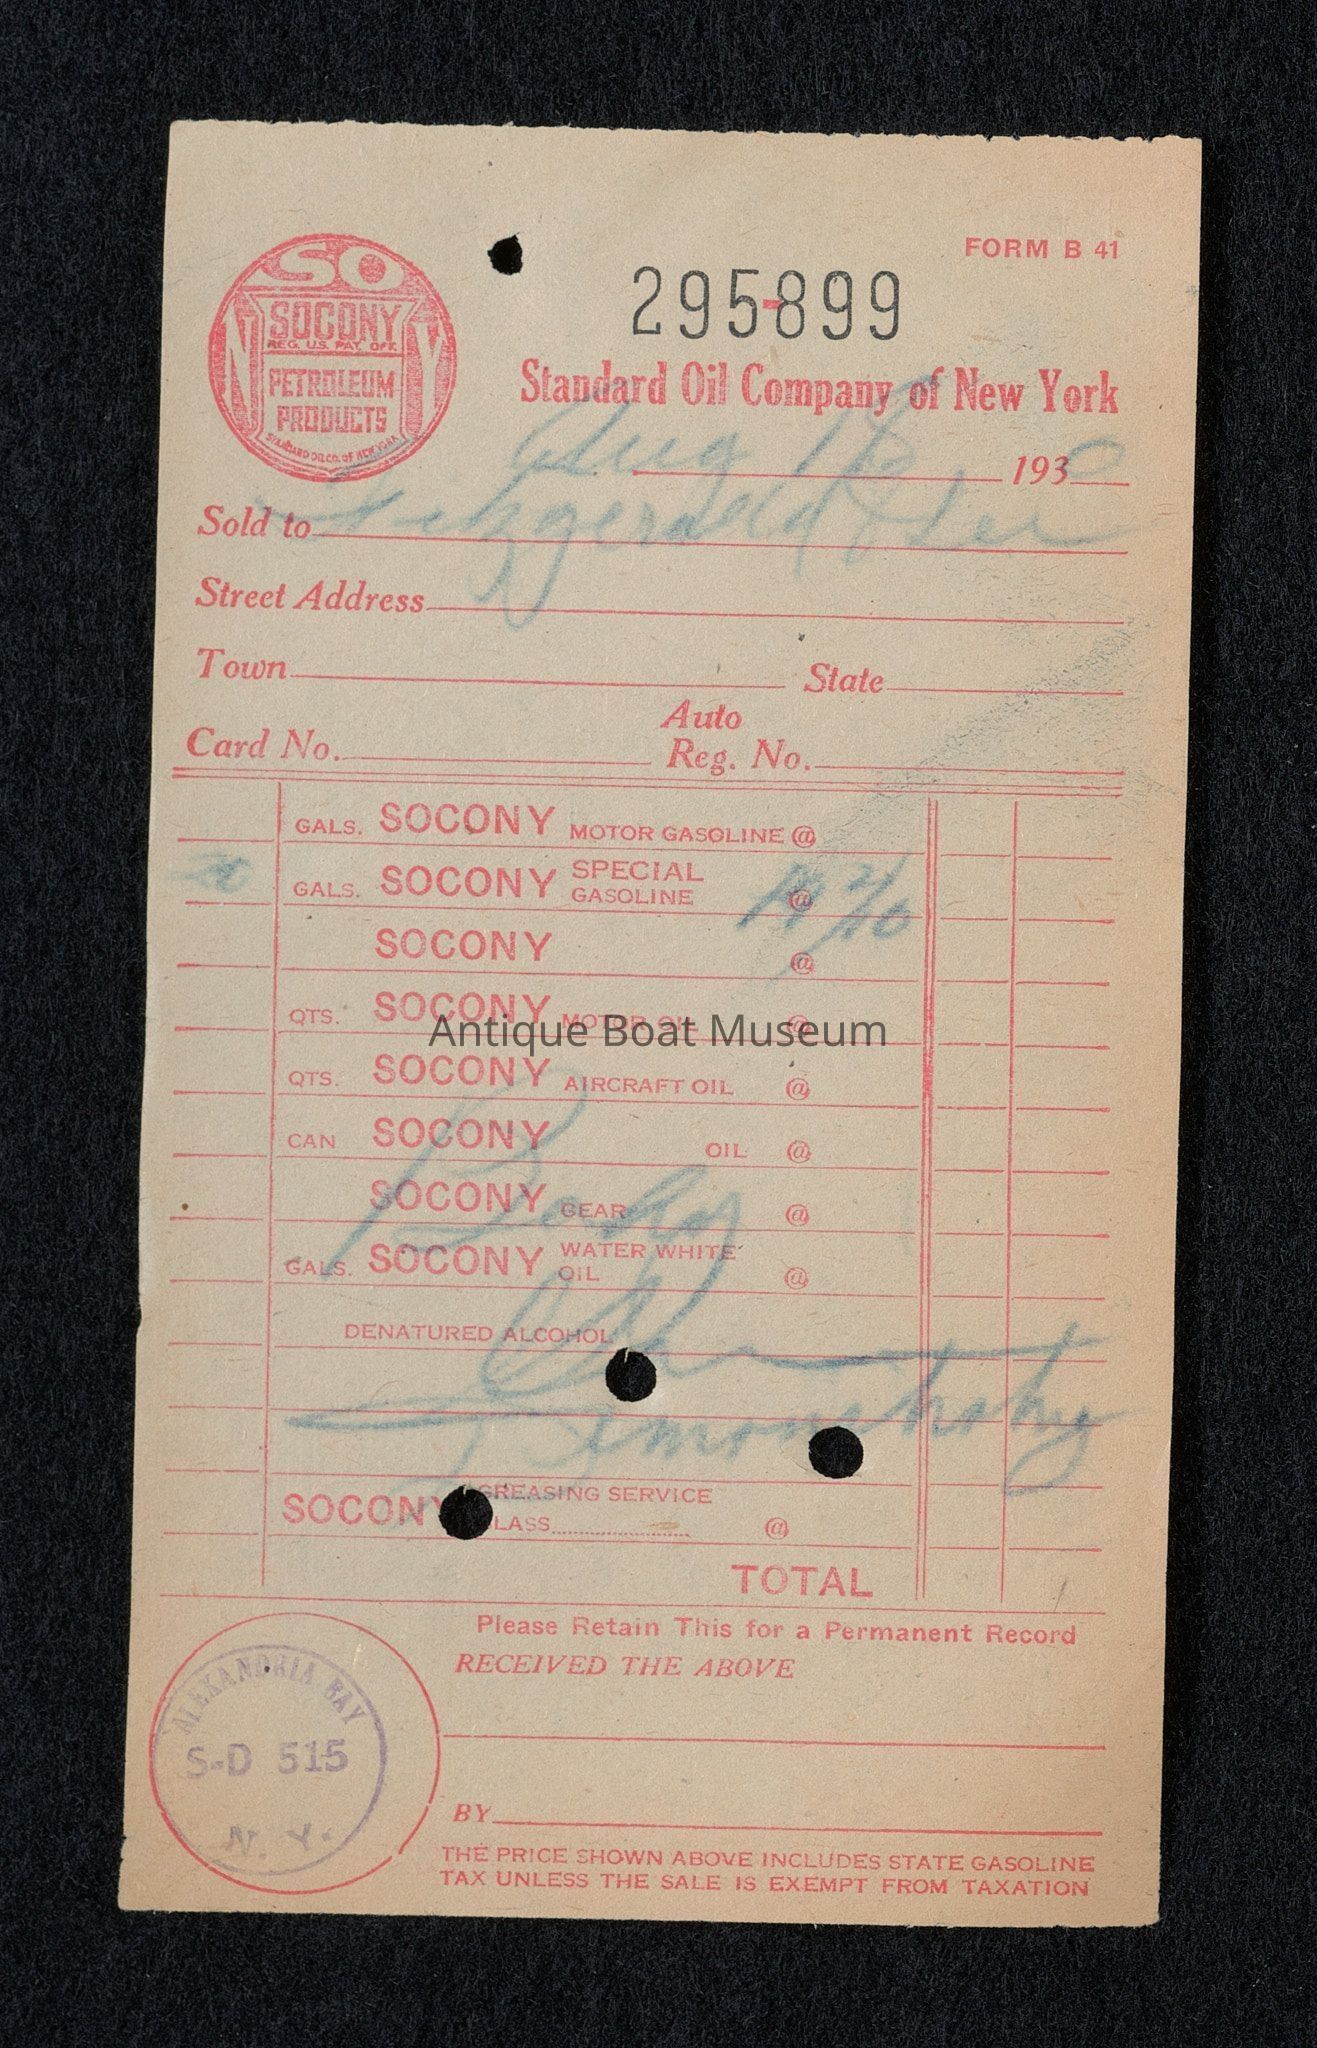 FORM B 41
SO
SOCONY
REG. U.S. PAT. OFF.
PETROLEUM
PRODUCTS
STANDARD OIL CO. OF NEW YORK
N Y
295-899
Standard Oil Company of New York
Aug 18 1930
Sold to Fitzgerald & Lee
Street Address
Town State
Card No. Auto Reg. No.
GALS. SOCONY MOTOR GASOLINE @
20 GALS. SOCONY SPECIAL GASOLINE @ 19 2/10
SOCONY @
QTS. SOCONY MOTOR OIL @
QTS. SOCONY AIRCRAFT OIL @
CAN SOCONY OIL @
SOCONY GEAR @
GALS. SOCONY WATER WHITE OIL @
DENATURED ALCOHOL
SOCONY GREASING SERVICE
LASS @
TOTAL
Please Retain This for a Permanent Record
RECEIVED THE ABOVE
BY
THE PRICE SHOWN ABOVE INCLUDES STATE GASOLINE
TAX UNLESS THE SALE IS EXEMPT FROM TAXATION
ALEXANDRIA BAY
S-D 515
N. Y.
Antique Boat Museum